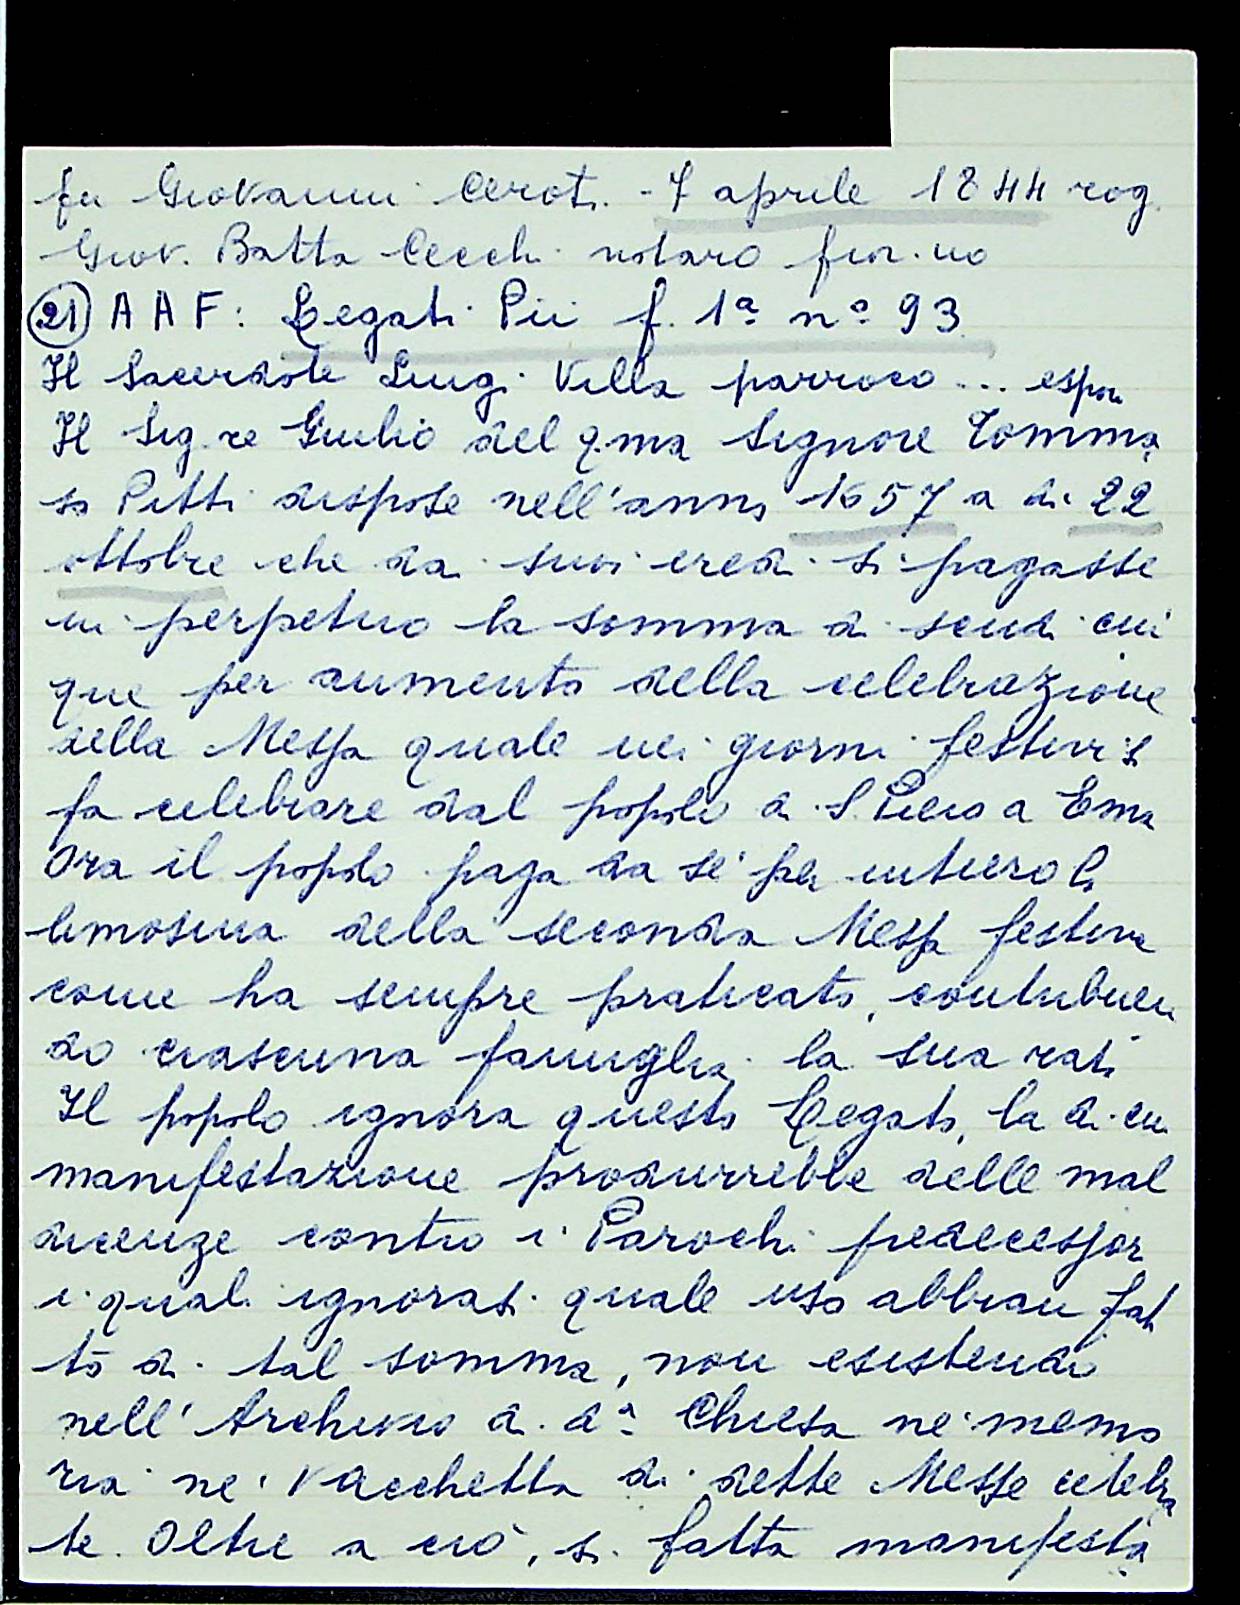 fu Giovanni Ceroti. - 7 aprile 1844 rog.
Giov. Batta Cecchi notaro fior.no
21) A A F: Legati Pii f. 1ª nº 93
Il Sacerdote Luigi Villa parroco ... espon
Il Sig.re Giulio del q.ma Signore Tomma
so Pitti dispose nell'anno 1657 a di 22
ottobre che da suoi eredi si pagasse
in perpetuo la somma di scudi cin
que per aumento della celebrazione
della Messa quale nei giorni festivi s
fa celebrare dal popolo di S. Piero a Ema
Ora il popolo paga da sé per intiero la
limosina della seconda Messa festiva
come ha sempre praticato, contribuen
do ciascuna famiglia la sua rata
Il popolo ignora questo Legato, la di cui
manifestazione produrrebbe delle mal
dicenze contro i Parochi predecessor
i quali ignorasi quale uso abbian fat
to di tal somma, non esistendo
nell'Archivio di dª Chiesa ne memo
ria ne vacchetta di dette Messe celebra
te. Oltre a ciò, si fatta manifesta